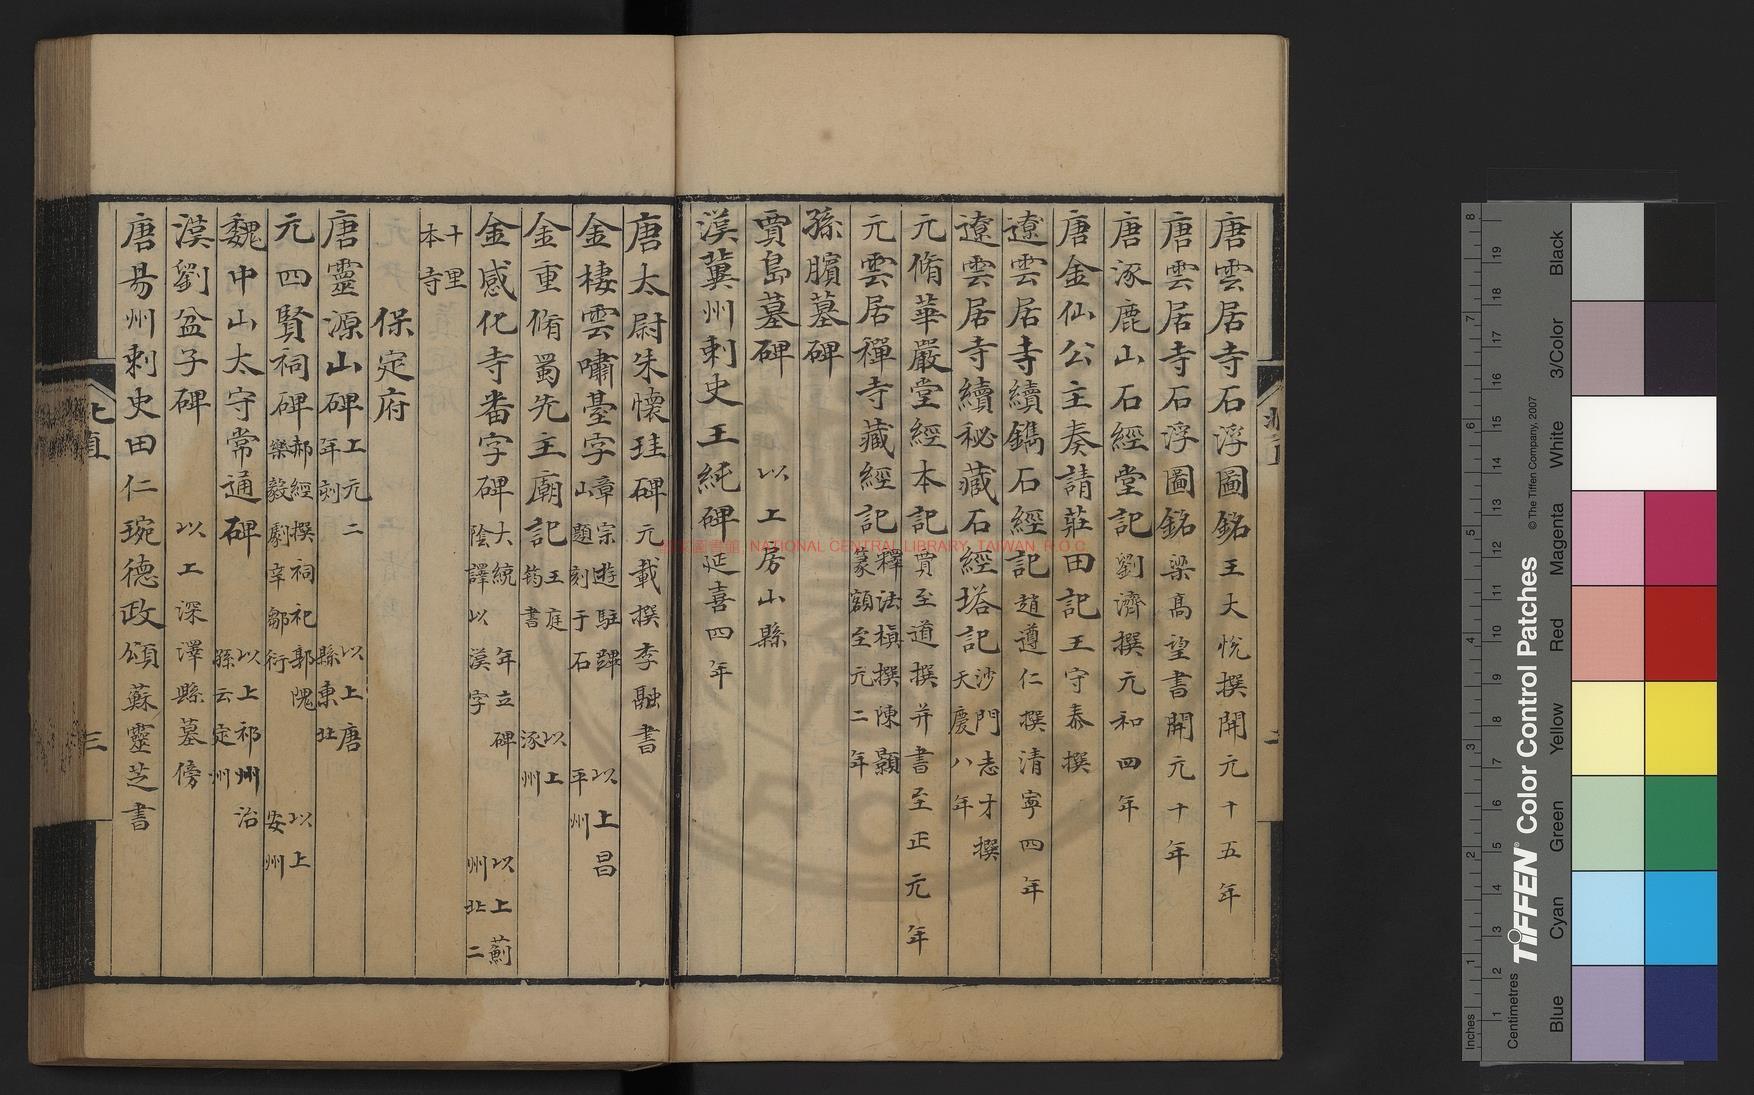 唐雲居寺石浮圖銘王大悅撰開元十五年
唐雲居寺石浮圖銘梁高望書開元十年
唐涿鹿山石經堂記劉濟撰元和四年
唐金仙公主奏請莊田記王守泰撰
遼雲居寺續鐫石經記趙遵仁撰清寧四年
遼雲居寺續秘藏石經塔記沙門志才撰天慶八年
元脩華嚴堂經本記賈至道撰并書至正元年
元雲居禪寺藏經記釋法楨撰陳顥篆額至元二年
孫臏墓碑
賈島墓碑 以上房山縣
漢冀州刺史王純碑延喜四年
唐太尉朱懷珪碑元載撰李融書
金棲雲嘯臺字章宗遊駐蹕山題刻于石 以上昌平州
金重脩蜀先主廟記王庭筠書 以上涿州
金感化寺畨字碑大統年立碑陰譯以漢字 以上薊州北二
十里本寺
保定府
唐靈源山碑上元二年刻 以上唐縣東北
元四賢祠碑郝經撰祠祀郭隗樂毅劇辛鄒衍 以上安州
魏中山太守常通碑 以上祁州治孫云定州
漢劉盆子碑 以上深澤縣墓傍
唐易州刺史田仁琬德政頌蘇靈芝書
二
三
國家圖書館, NATIONAL CENTRAL LIBRARY, TAIWAN, R.O.C
Inches
Centimetres
TIFFEN® Color Control Patches
© The Tiffen Company, 2007
Blue
Cyan
Green
Yellow
Red
Magenta
White
3/Color
Black